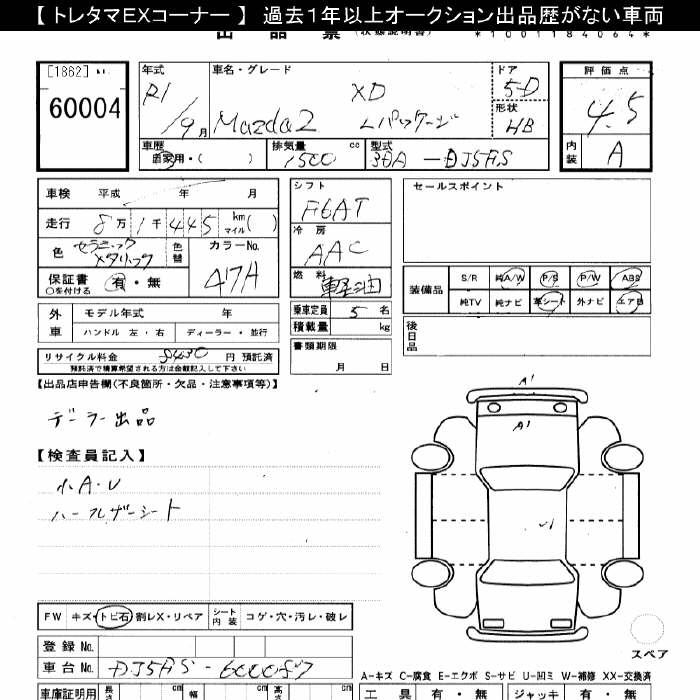 【トレタマEXコーナー】 過去1年以上オークション出品歴がない車両
[1862] No. 60004
年式 R1/9月
車名・グレード Mazda2 XD Lパッケージ
ドア 5-D
形状 HB
評価点 4.5
内装 A
車歴 自家用・( )
排気量 1500 cc
型式 3DA-DJ5AS
車検 平成 年 月
走行 8万1千445 km マイル( )
色 セラミックメタリック
色替
カラーNo. 47A
保証書 ○を付ける 有・無
外車 モデル年式 年
ハンドル 左・右 ディーラー・並行
リサイクル料金 円 預託済
預託済で精算希望される方は金額記入して下さい
シフト F6AT
冷房 AAC
燃料 軽油
乗車定員 5 名
積載量 kg
書類期限 月 日
セールスポイント
装備品 S/R 純A/W P/S P/W ABS
純TV 純ナビ 革シート 外ナビ エアB
後日品
【出品店申告欄(不良箇所・欠品・注意事項等)】
デーラー出品
【検査員記入】
小A・U
ハーフレザーシート
A1
A1
FW キズ・トビ石・割レX・リペア シート内装 コゲ・穴・汚レ・破レ
登録No.
車台No. DJ5AS-
スペア
A-キズ C-腐食 E-エクボ S-サビ U-凹ミ W-補修 XX-交換済
車庫証明用 長さ cm 幅 cm 高さ cm
工具 有・無 ジャッキ 有・無